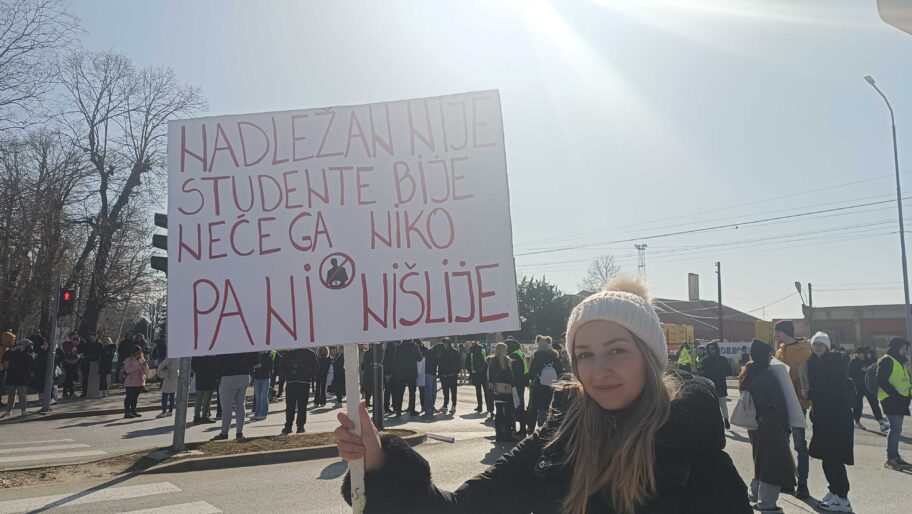 NADLEŽAN NIJE
STUDENTE BIJE
NEĆE GA NIKO
PA NI NIŠLIJE